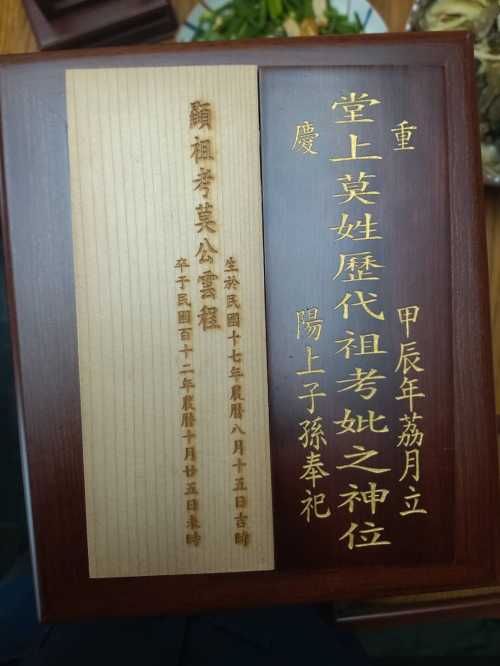 重
甲辰年荔月立
堂上莫姓歷代祖考妣之神位
慶
陽上子孫奉祀
生於民國十七年農曆八月十五日吉時
顯祖考莫公雲程
卒于民國百十二年農曆十月廿五日未時